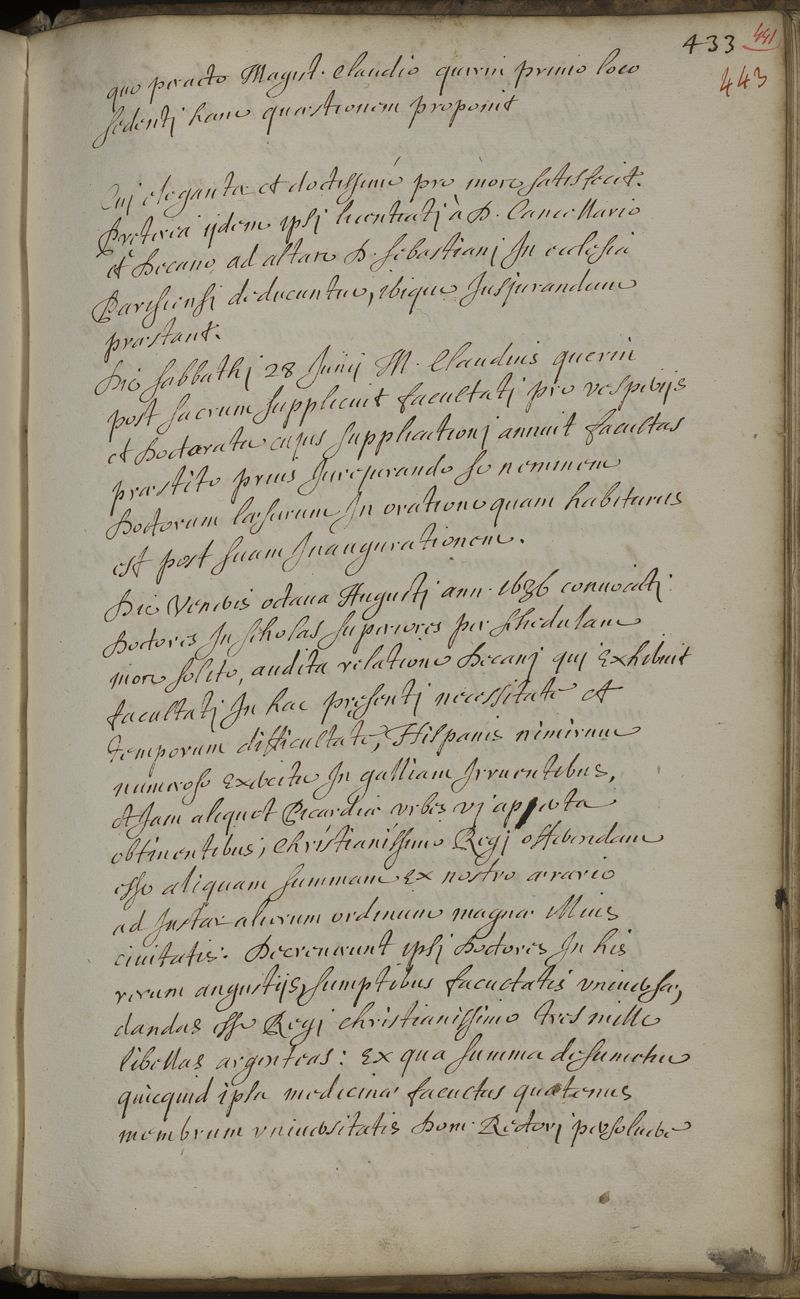 433 441
443
quo peracto Magist. Claudio querin primo loco
sedentj hanc quæstionem proponit
Cuj eleganter et doctissimè pro more satisfecit.
Præterea ijdem ipsj licentiatj à D. Cancellario
et Decano ad altare D. Sebastianj In ecclesia
Parisiensj deducuntur, ibique Jusjurandum
præstant.
Die sabbathj 28 Junij M. Claudius querin
post sacrum supplicuit facultatj pro vesperijs
et Doctoratu cujus supplicationj annuit facultas
præstito prius Jurejurando se neminem
Doctorum læsurum In oratione quam habiturus
est post suam Inaugurationem.
Die Veneris octaua Augustj ann. 1636 conuocatj
Doctores In scholas superiores per schedulam
more solito, audita relatione Decanj quj Exhibuit
facultatj In hac presentj necessitate et
temporum difficultate, Hispanis nimirum
numeroso Exercitu In galliam Irruentibus,
et Jam aliquot Picardiæ vrbes vj aperta
obtinentibus, Christianissimo Regj offerendam
esse aliquam summam Ex nostro ærario
ad Instar aliorum ordinum magnæ illius
ciuitatis. Decreuerunt ipsj Doctores In his
rerum angustijs, sumptibus facultatis vniuersæ,
dandas esse Regj christianissimo tres mille
libellas argenteas: Ex qua summa desumetur
quicquid ipsa medicinæ facultas quatenus
membrum vniuersitatis Dom. Rectorj persoluere